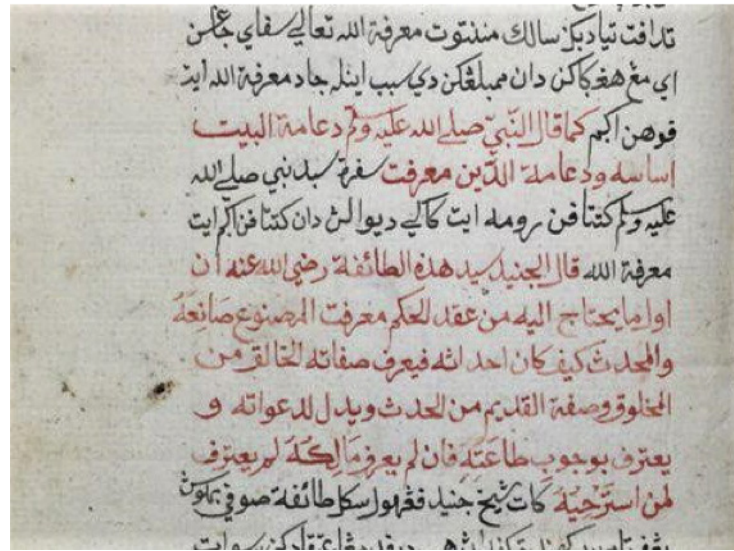 تدافت تيادبکن سالك منتتوت معرفة الله تعالى سفاي جاڠن
اي مڠهڠركاكن دان ممبلڠكن دي سبب اينله جاد معرفة الله ايت
فوهن اڬم كما قال النّبيّ صلى الله عليه وسلم دعامة البيت
اساسه ودعامة الدّين معرفت سفرة سبد نبي صلى الله
عليه وسلم كتتافن رومه ايت كاكي ديوالڽ دان كتتافن اڬم ايت
معرفة الله قال الجنيد سيد هذه الطائفة رضي الله عنه ان
اول ما يحتاج اليه من عقد الحكم معرفت المصنوع صَانِعَهُ
والمحدث كيف كان احداثه فيعرف صفاته الخالق من
المخلوق وصفة القديم من الحدث ويدل لدعواته و
يعترف بوجوب طاعَتِهِ فان لم يعرف مَالِكَهُ لم يعترف
لمن استَرْحِيَهُ كات شيخ جنيد ڤڠهولو سكل طائفة صوفي بهاوسڽ